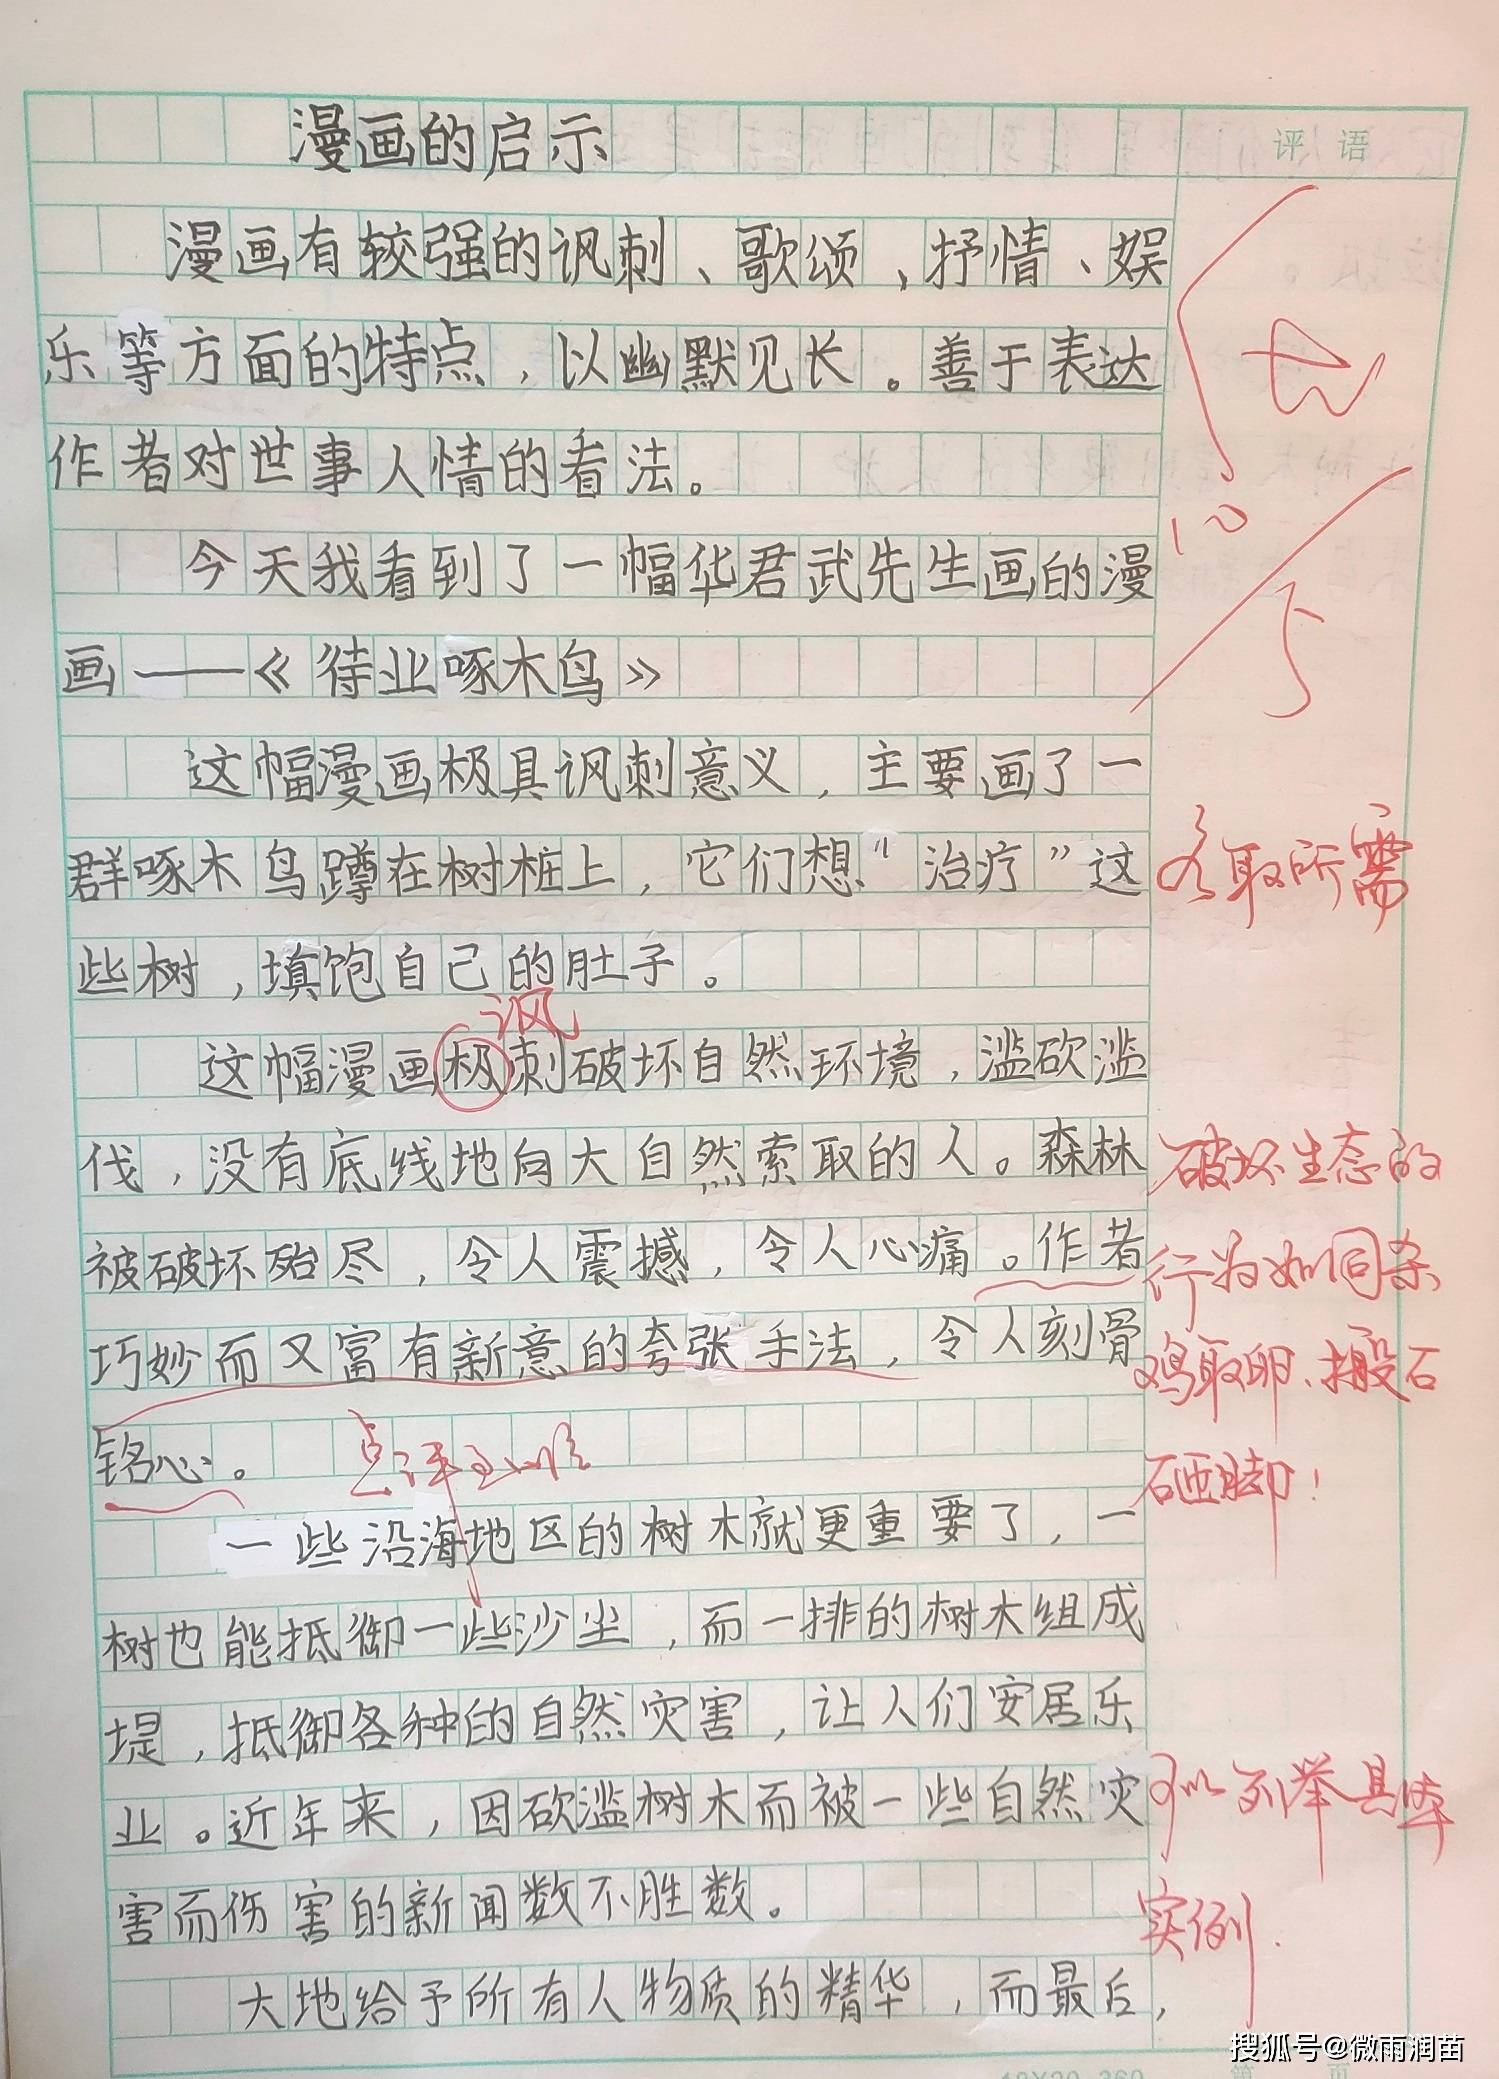 评语
漫画的启示
漫画有较强的讽刺、歌颂、抒情、娱
乐等方面的特点，以幽默见长。善于表达
作者对世事人情的看法。
10
今天我看到了一幅华君武先生画的漫
画——《待业啄木鸟》
这幅漫画极具讽刺意义，主要画了一
群啄木鸟蹲在树桩上，它们想“治疗”这
各取所需
些树，填饱自己的肚子。
讽
这幅漫画极刺破坏自然环境，滥砍滥
伐，没有底线地向大自然索取的人。森林
破坏生态的
被破坏殆尽，令人震撼，令人心痛。作者
行为如同杀
巧妙而又富有新意的夸张手法，令人刻骨
鸡取卵、搬石
铭心。
点评
砸脚！
一些沿海地区的树木就更重要了，一
树也能抵御一些沙尘，而一排的树木组成
堤，抵御各种的自然灾害，让人们安居乐
可以列举具体
业。近年来，因砍滥树木而被一些自然灾
害而伤害的新闻数不胜数。
实例.
大地给予所有人物质的精华，而最后，
搜狐号@微雨润苗
18X20=360
第 页